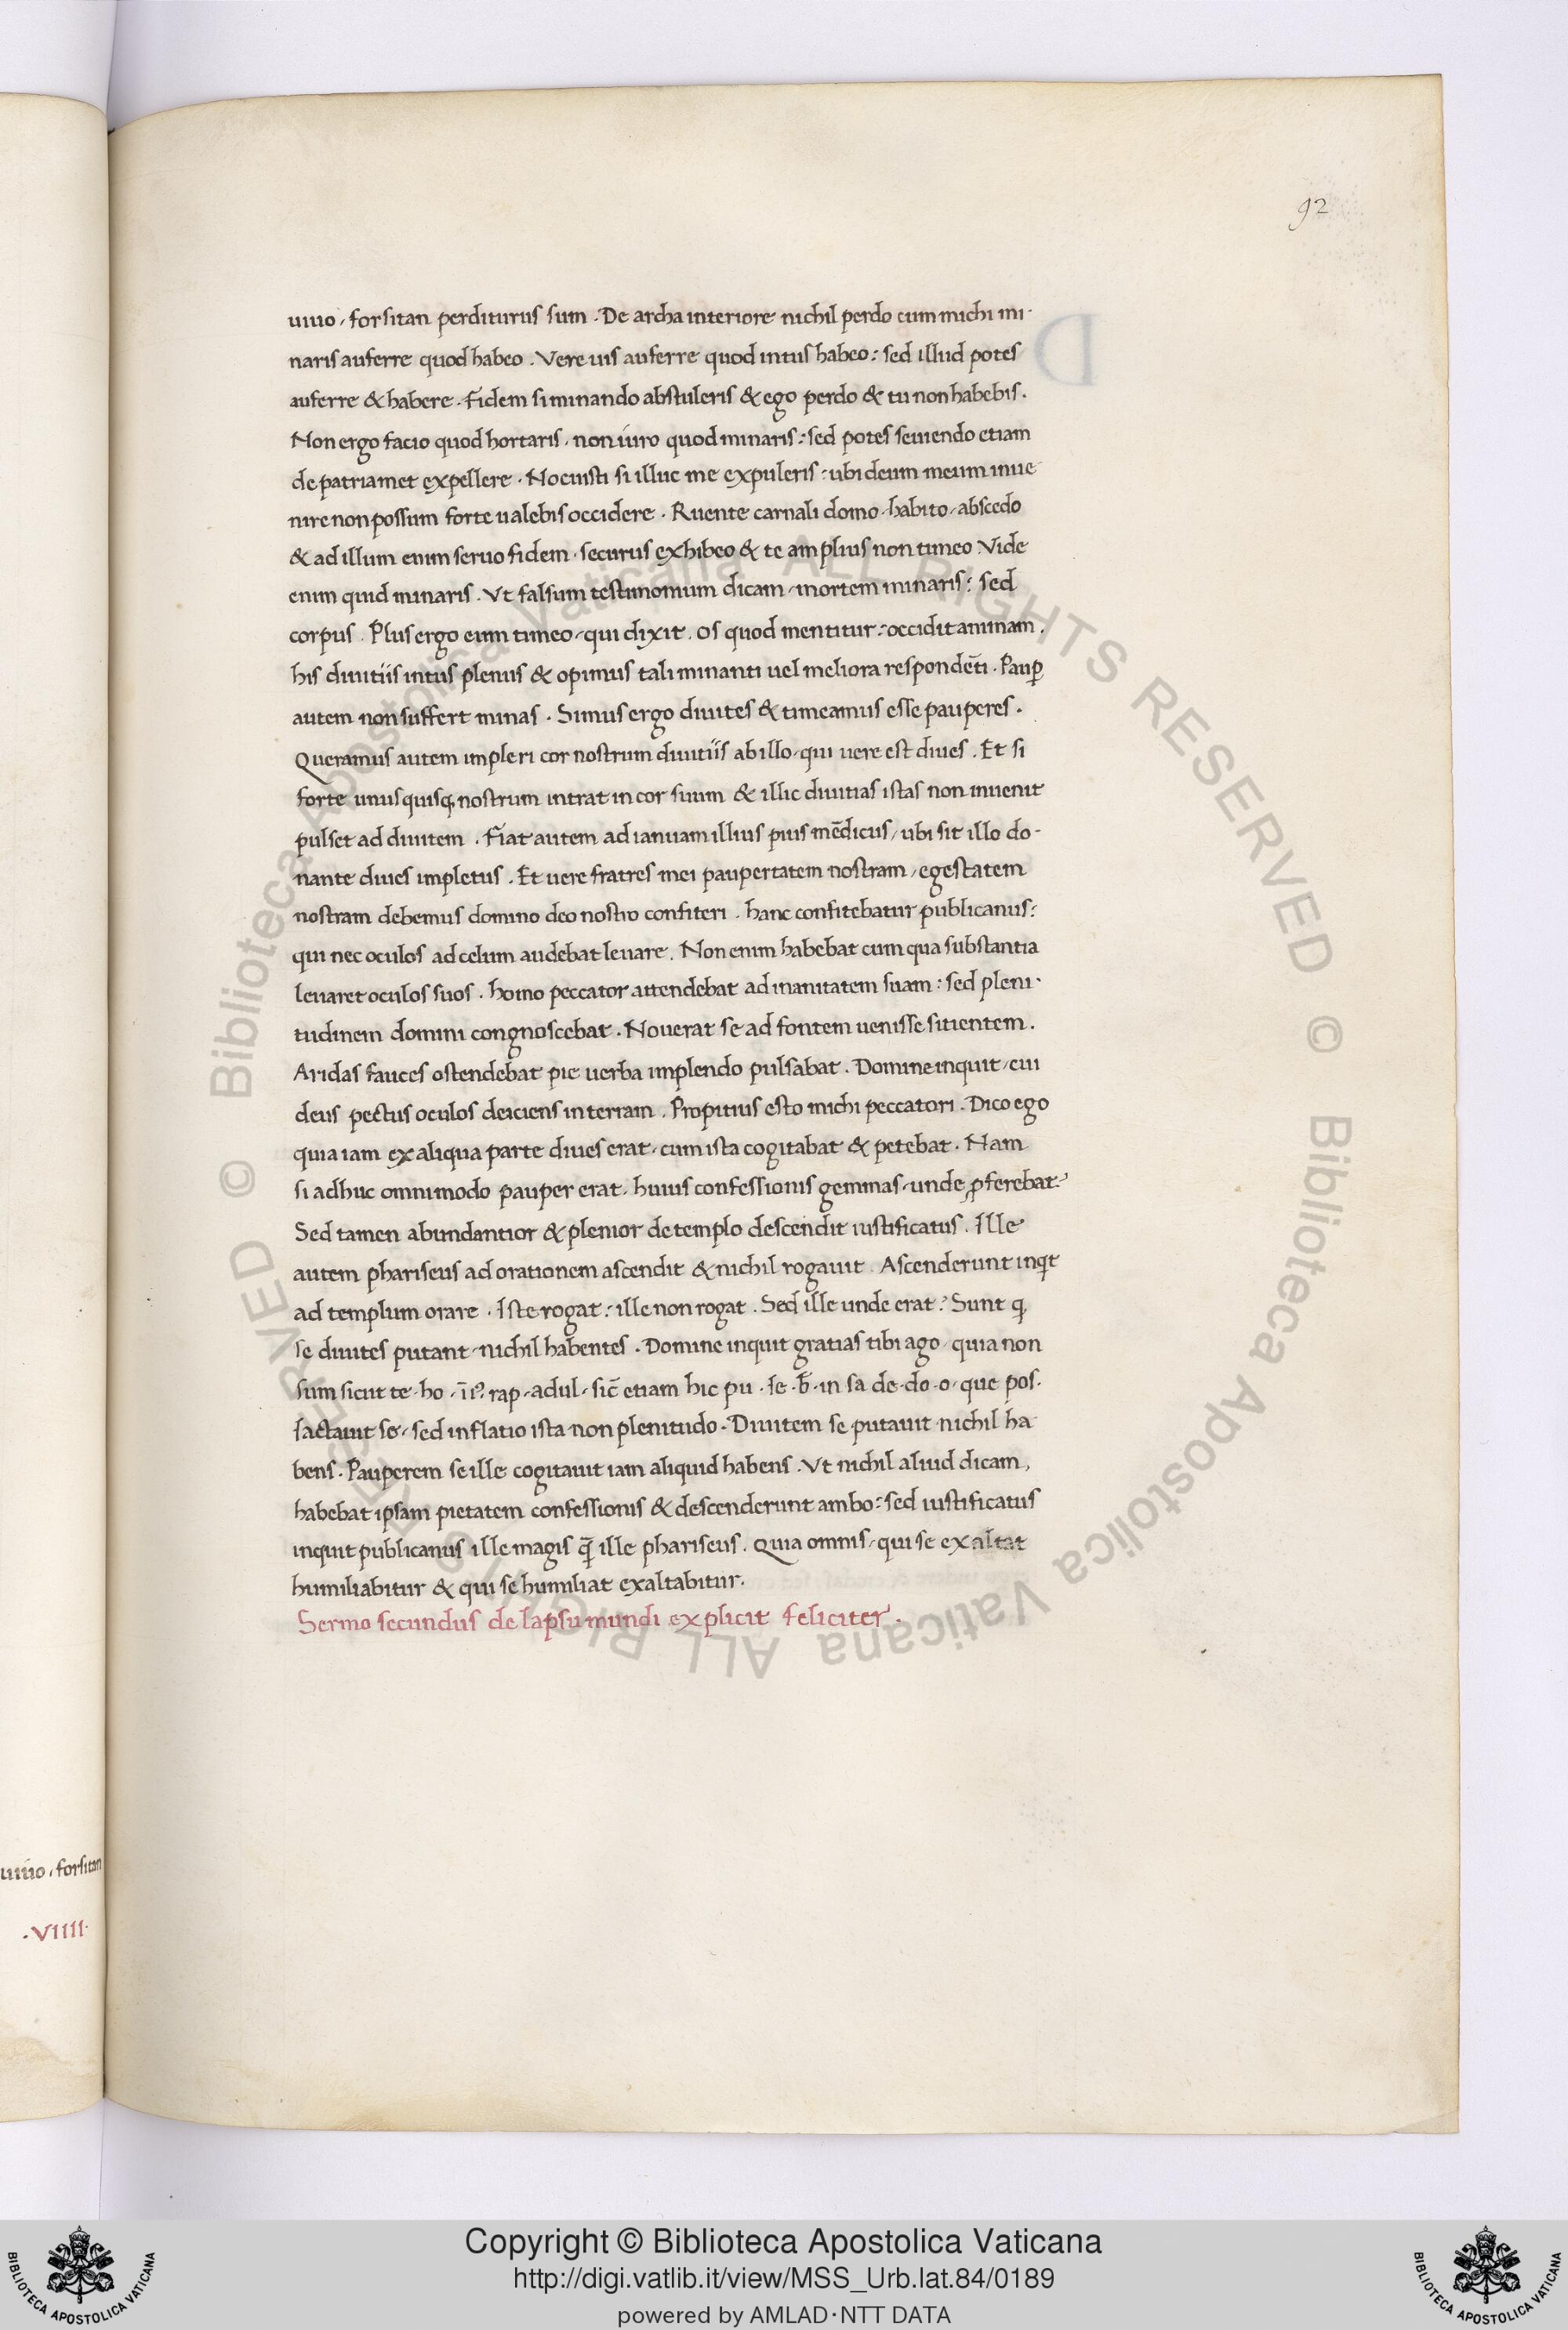 92
uiuo, forsitan perditurus sum. De archa interiore nichil perdo cum michi mi-
naris auferre quod habeo. Vere uis auferre quod intus habeo: sed illud potes
auferre & habere. Fidem si minando abstuleris & ego perdo & tu non habebis.
Non ergo facio quod hortaris, non curo quod minaris: sed potes seuiendo etiam
de patria met expellere. Nocuisti si illuc me expuleris: ubi deum meum inue
nire non possum forte ualebis occidere. Ruente carnali domo, habito, abscedo
& ad illum enim seruo fidem, securus exhibeo & te amplius non timeo. Vide
enim quid minaris. Vt falsum testimonium dicam, mortem minaris: sed
corpus. Plus ergo eum timeo, qui dixit. os quod mentitur: occidit animam.
his diuitiis intus plenus & opimus tali minanti uel meliora respondēti. Paup̱
autem non suffert minas. Simus ergo diuites & timeamus esse pauperes.
Queramus autem impleri cor nostrum diuitiis ab illo, qui uere est diues. Et si
forte unusquisq; nostrum intrat in cor suum & illic diuitias istas non inuenit
pulset ad diuitem. Fiat autem ad ianuam illius pius mēdicus, ubi sit illo do-
nante diues impletus. Et uere fratres mei paupertatem nostram, egestatem
nostram debemus domino deo nostro confiteri. hanc confitebatur publicanus:
qui nec oculos ad celum audebat leuare. Non enim habebat cum qua substantia
leuaret oculos suos. homo peccator attendebat ad inanitatem suam: sed pleni-
tudinem domini congnoscebat. Nouerat se ad fontem uenisse sitientem.
Aridas fauces ostendebat pie uerba implendo pulsabat. Domine inquit, cui
deus pectus oculos deiciens in terram. Propitius esto michi peccatori. Dico ego
quia iam ex aliqua parte diues erat, cum ista cogitabat & petebat. Nam
si adhuc omnimodo pauper erat, huius confessionis gemmas, unde ꝓferebat?
Sed tamen abundantior & plenior de templo descendit iustificatus. Ille
autem phariseus ad orationem ascendit & nichil rogauit. Ascenderunt inqt
ad templum orare. Iste rogat: ille non rogat. Sed ille unde erat? Sunt q;
se diuites putant, nichil habentes. Domine inquit gratias tibi ago, quia non
sum sicut te. ho. rap. adul. sic̄ etiam hic pu. Ie. b̄. in sa de. do. o. que pos.
Iactauit se, sed inflatio ista non plenitudo. Diuitem se putauit nichil ha
bens. Pauperem se ille cogitauit iam aliquid habens. Vt nichil aliud dicam,
habebat ipsam pietatem confessionis & descenderunt ambo: sed iustificatus
inquit publicanus ille magis q̄ ille phariseus. Quia omnis, qui se exaltat
humiliabitur & qui se humiliat exaltabitur.
Sermo secundus de lapsu mundi explicit feliciter.
uiuo, forsitan
.VIIII.
© Biblioteca Apostolica Vaticana ALL RIGHTS RESERVED
© Biblioteca Apostolica Vaticana ALL RIGHTS RESERVED
Copyright © Biblioteca Apostolica Vaticana
http://digi.vatlib.it/view/MSS_Urb.lat.84/0189
powered by AMLAD·NTT DATA
BIBLIOTECA APOSTOLICA VATICANA
BIBLIOTECA APOSTOLICA VATICANA